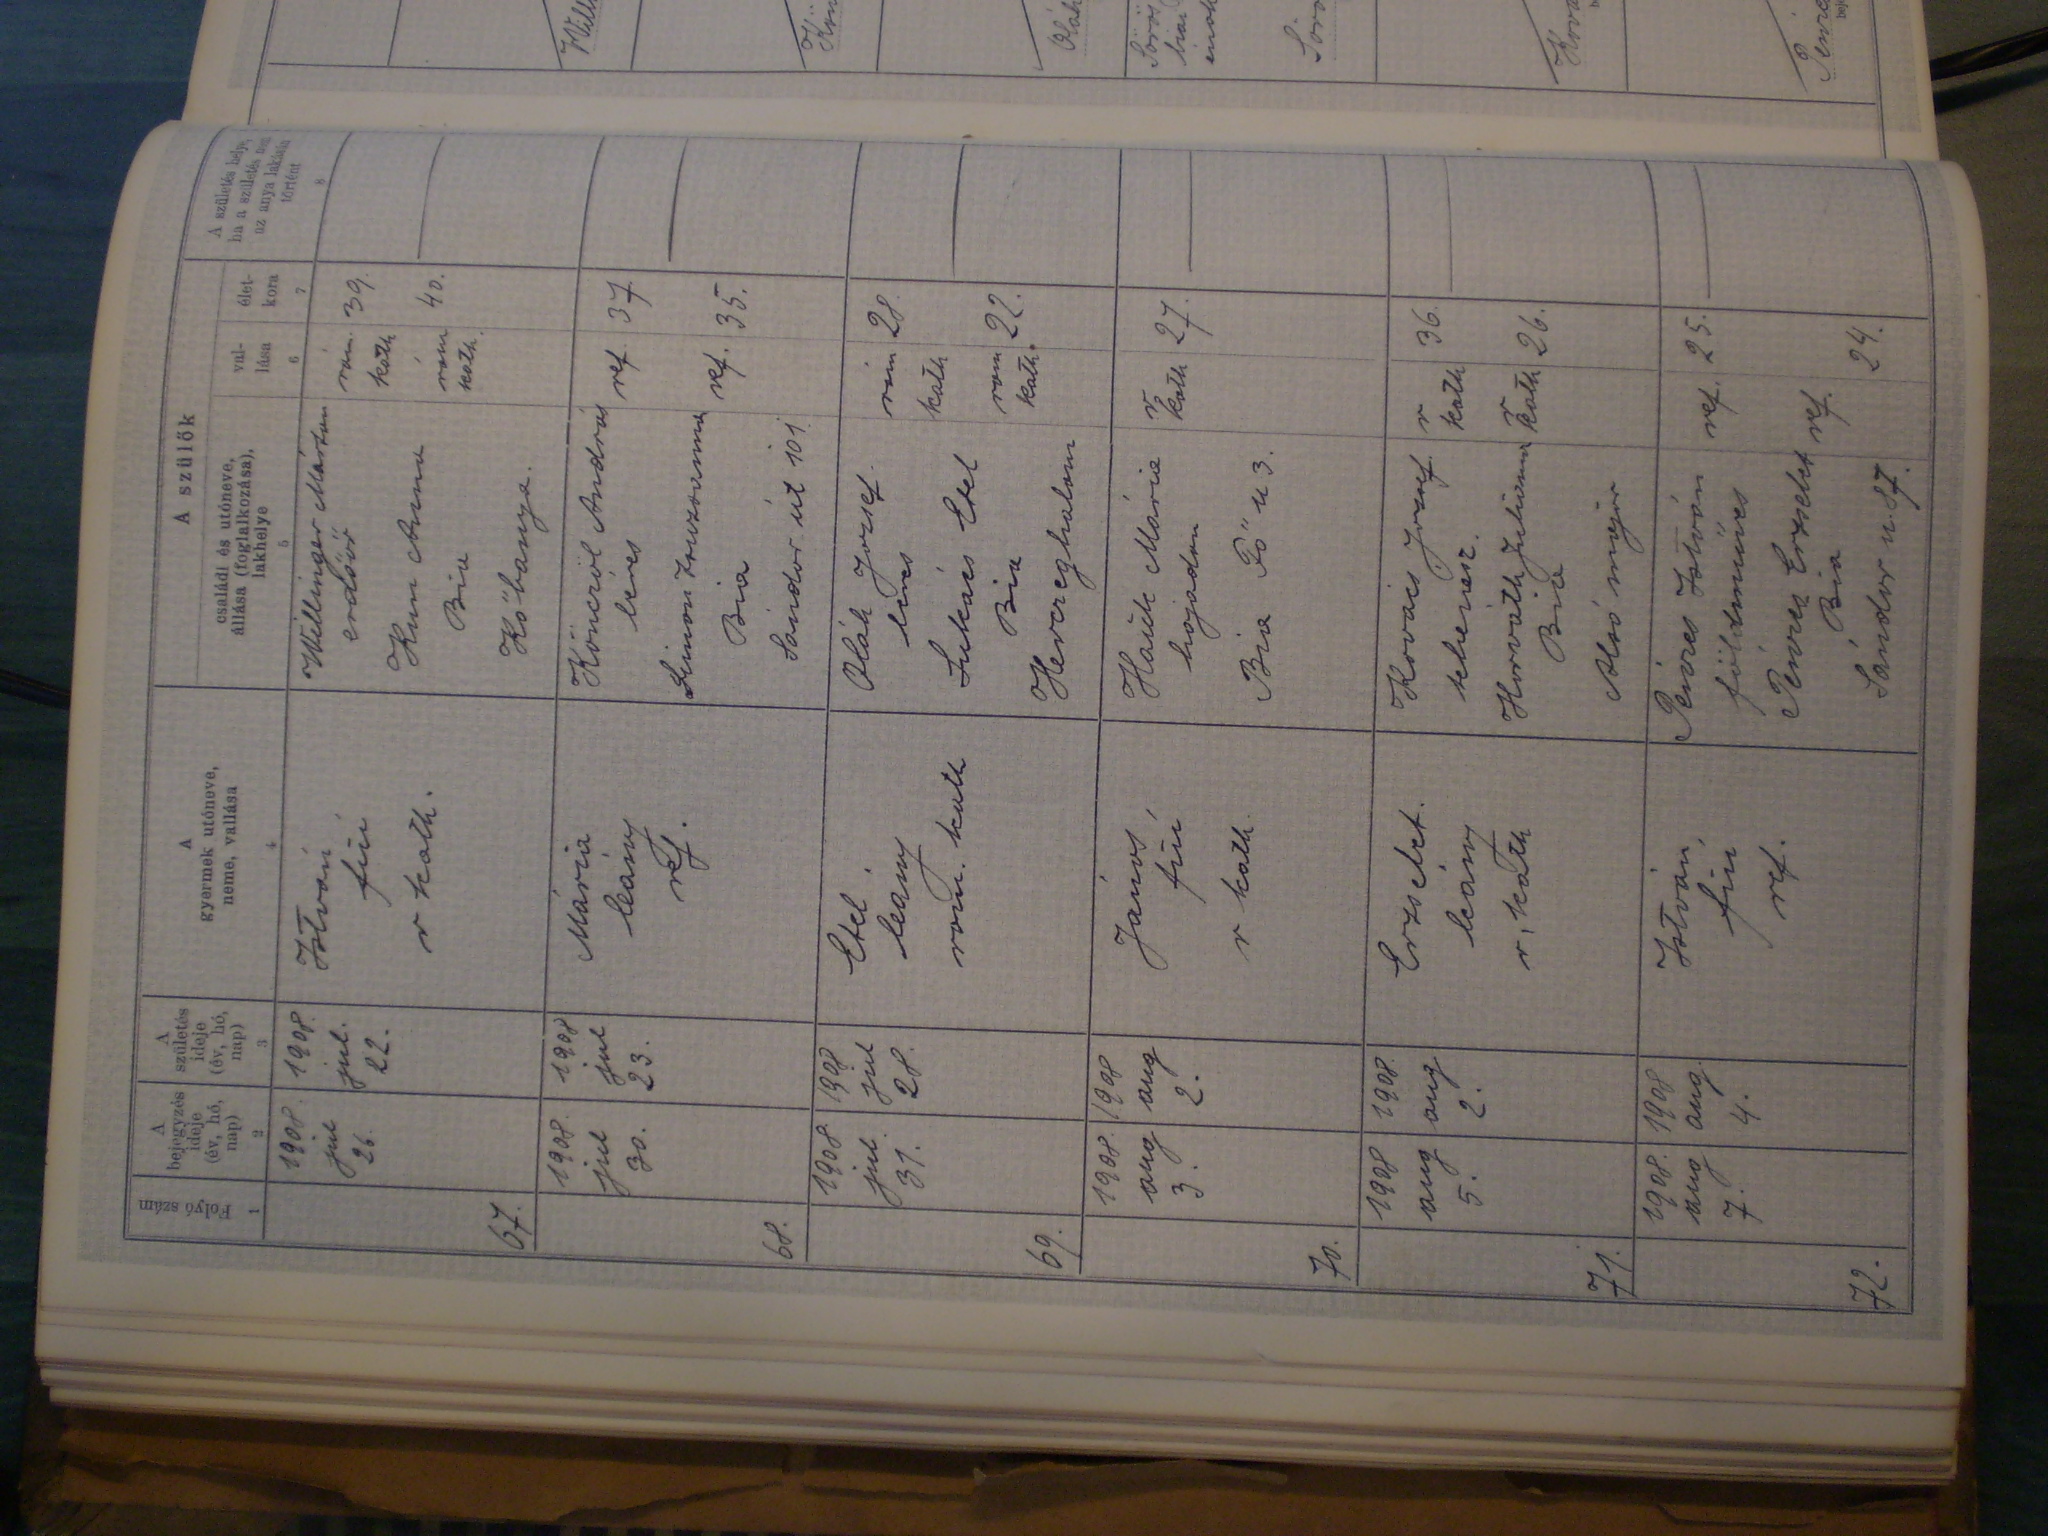 Folyó szám
A bejegyzés ideje (év, hó, nap)
A születés ideje (év, hó, nap)
A gyermek utóneve, neme, vallása
A szülők
családi és utóneve, állása (foglalkozása), lakhelye
val-lása
élet-kora
A születés helye, ha a születés nem az anya lakásán történt
1
2
3
4
5
6
7
8
67.
1908.
jul
26.
1908.
jul.
22.
István
fiú
r kath.
Willinger Márton
erdőőr
Kun Anna
Bia
Kőbánya.
róm.
kath
róm
kath.
39.
40.
68.
1908.
jul
30.
1908
jul
23.
Mária
leány
ref.
Könczöl András
béres
Simon Zsuzsanna
Bia
Sándor út 101
ref.
ref.
37.
35.
69.
1908.
jul.
31.
1908
jul
28.
Etel
leány
rom. kath
Oláh József.
béres
Lukács Etel
Bia
Herczeghalom
róm
kath
rom
kath.
28.
22.
70.
1908.
aug
3.
1908
aug
2.
János
fiú
r kath.
Mária
hajadon
Bia Fő u 3.
r
kath
27.
71.
1908
aug
5.
1908.
aug
2.
Erzsébet.
leány
r. kath
Kovács József.
tehenész.
Horváth Juliánna
Bia
Alsó major
r
kath
r
kath
36.
26.
72.
1908.
aug
7.
1908
aug.
4.
István
fiú
ref.
István
földműves
Erzsébet
Bia
Sándor u. 87.
ref.
ref.
25.
24.